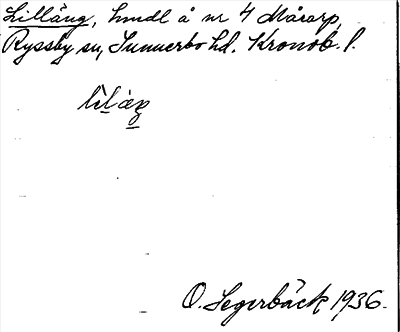 Lilläng, hmdl å nr 4 Mårarp,
Ryssby sn, Sunnerbo hd. Kronob. l.
O. Segerbäck 1936.